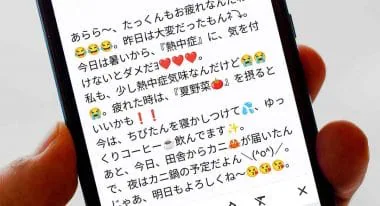 あらら〜、たっくんもお疲れなんだね
😂😂😂。昨日は大変だったもんネ⤵。
今日は暑いから、『熱中症』に、気を付
けないとダメだヨ❤️❤️❤️。
私も、少し熱中症気味なんだけど😭
😭。疲れた時は、『夏野菜🍅』を摂ると
いいかも❗❗
今は、ちびたんを寝かしつけて💦、ゆっ
くりコーヒー☕飲んでます✨。
あと、今日、田舎からカニ🦀が届いたん
で、夜はカニ鍋の予定だよん＼(^o^)／。
じゃあ、明日もよろしくね〜😘😘😘。